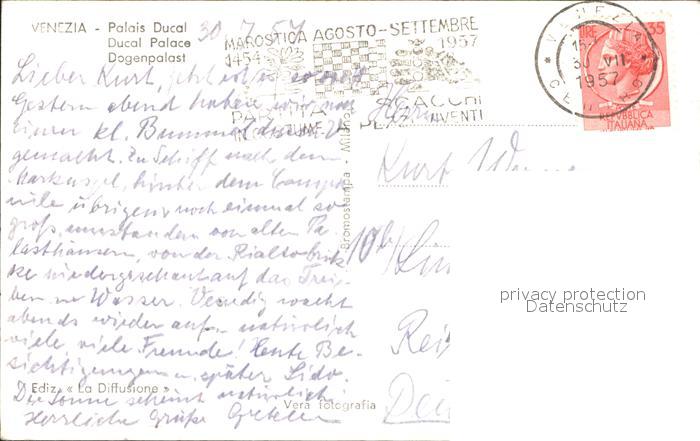 VENEZIA - Palais Ducal
Ducal Palace
Dogenpalast
30.7.57
MAROSTICA AGOSTO-SETTEMBRE
1454 1957
PARTITA A SCACCHI
IN COSTUME PLAZ VIVENTI
VENEZIA
30 VII.
1957
LIRE 35
REPVBBLICA
ITALIANA
Lieber Kurt, jetzt ist es soweit
Gestern abend haben wir noch
einen kl. Bummel durch V.
gemacht. Zu Schiff nach dem
Markuspl, hinter dem Campa
nile übrigens noch einmal so
groß, umstanden von alten Pa
lasthäusern, von der Rialtobrük
ke wiedergeschaut auf das Trei-
ben im Wasser. Venedig wacht
abends wieder auf, natürlich
viele viele Fremde! Heute Be-
sichtigungen, später Lido.
Die Sonne scheint natürlich!
Herrliche Grüße Gretel
Herrn
Kurt
10b
Rei
Bromostampa - Milano
Ediz. « La Diffusione »
Vera fotografia
privacy protection
Datenschutz